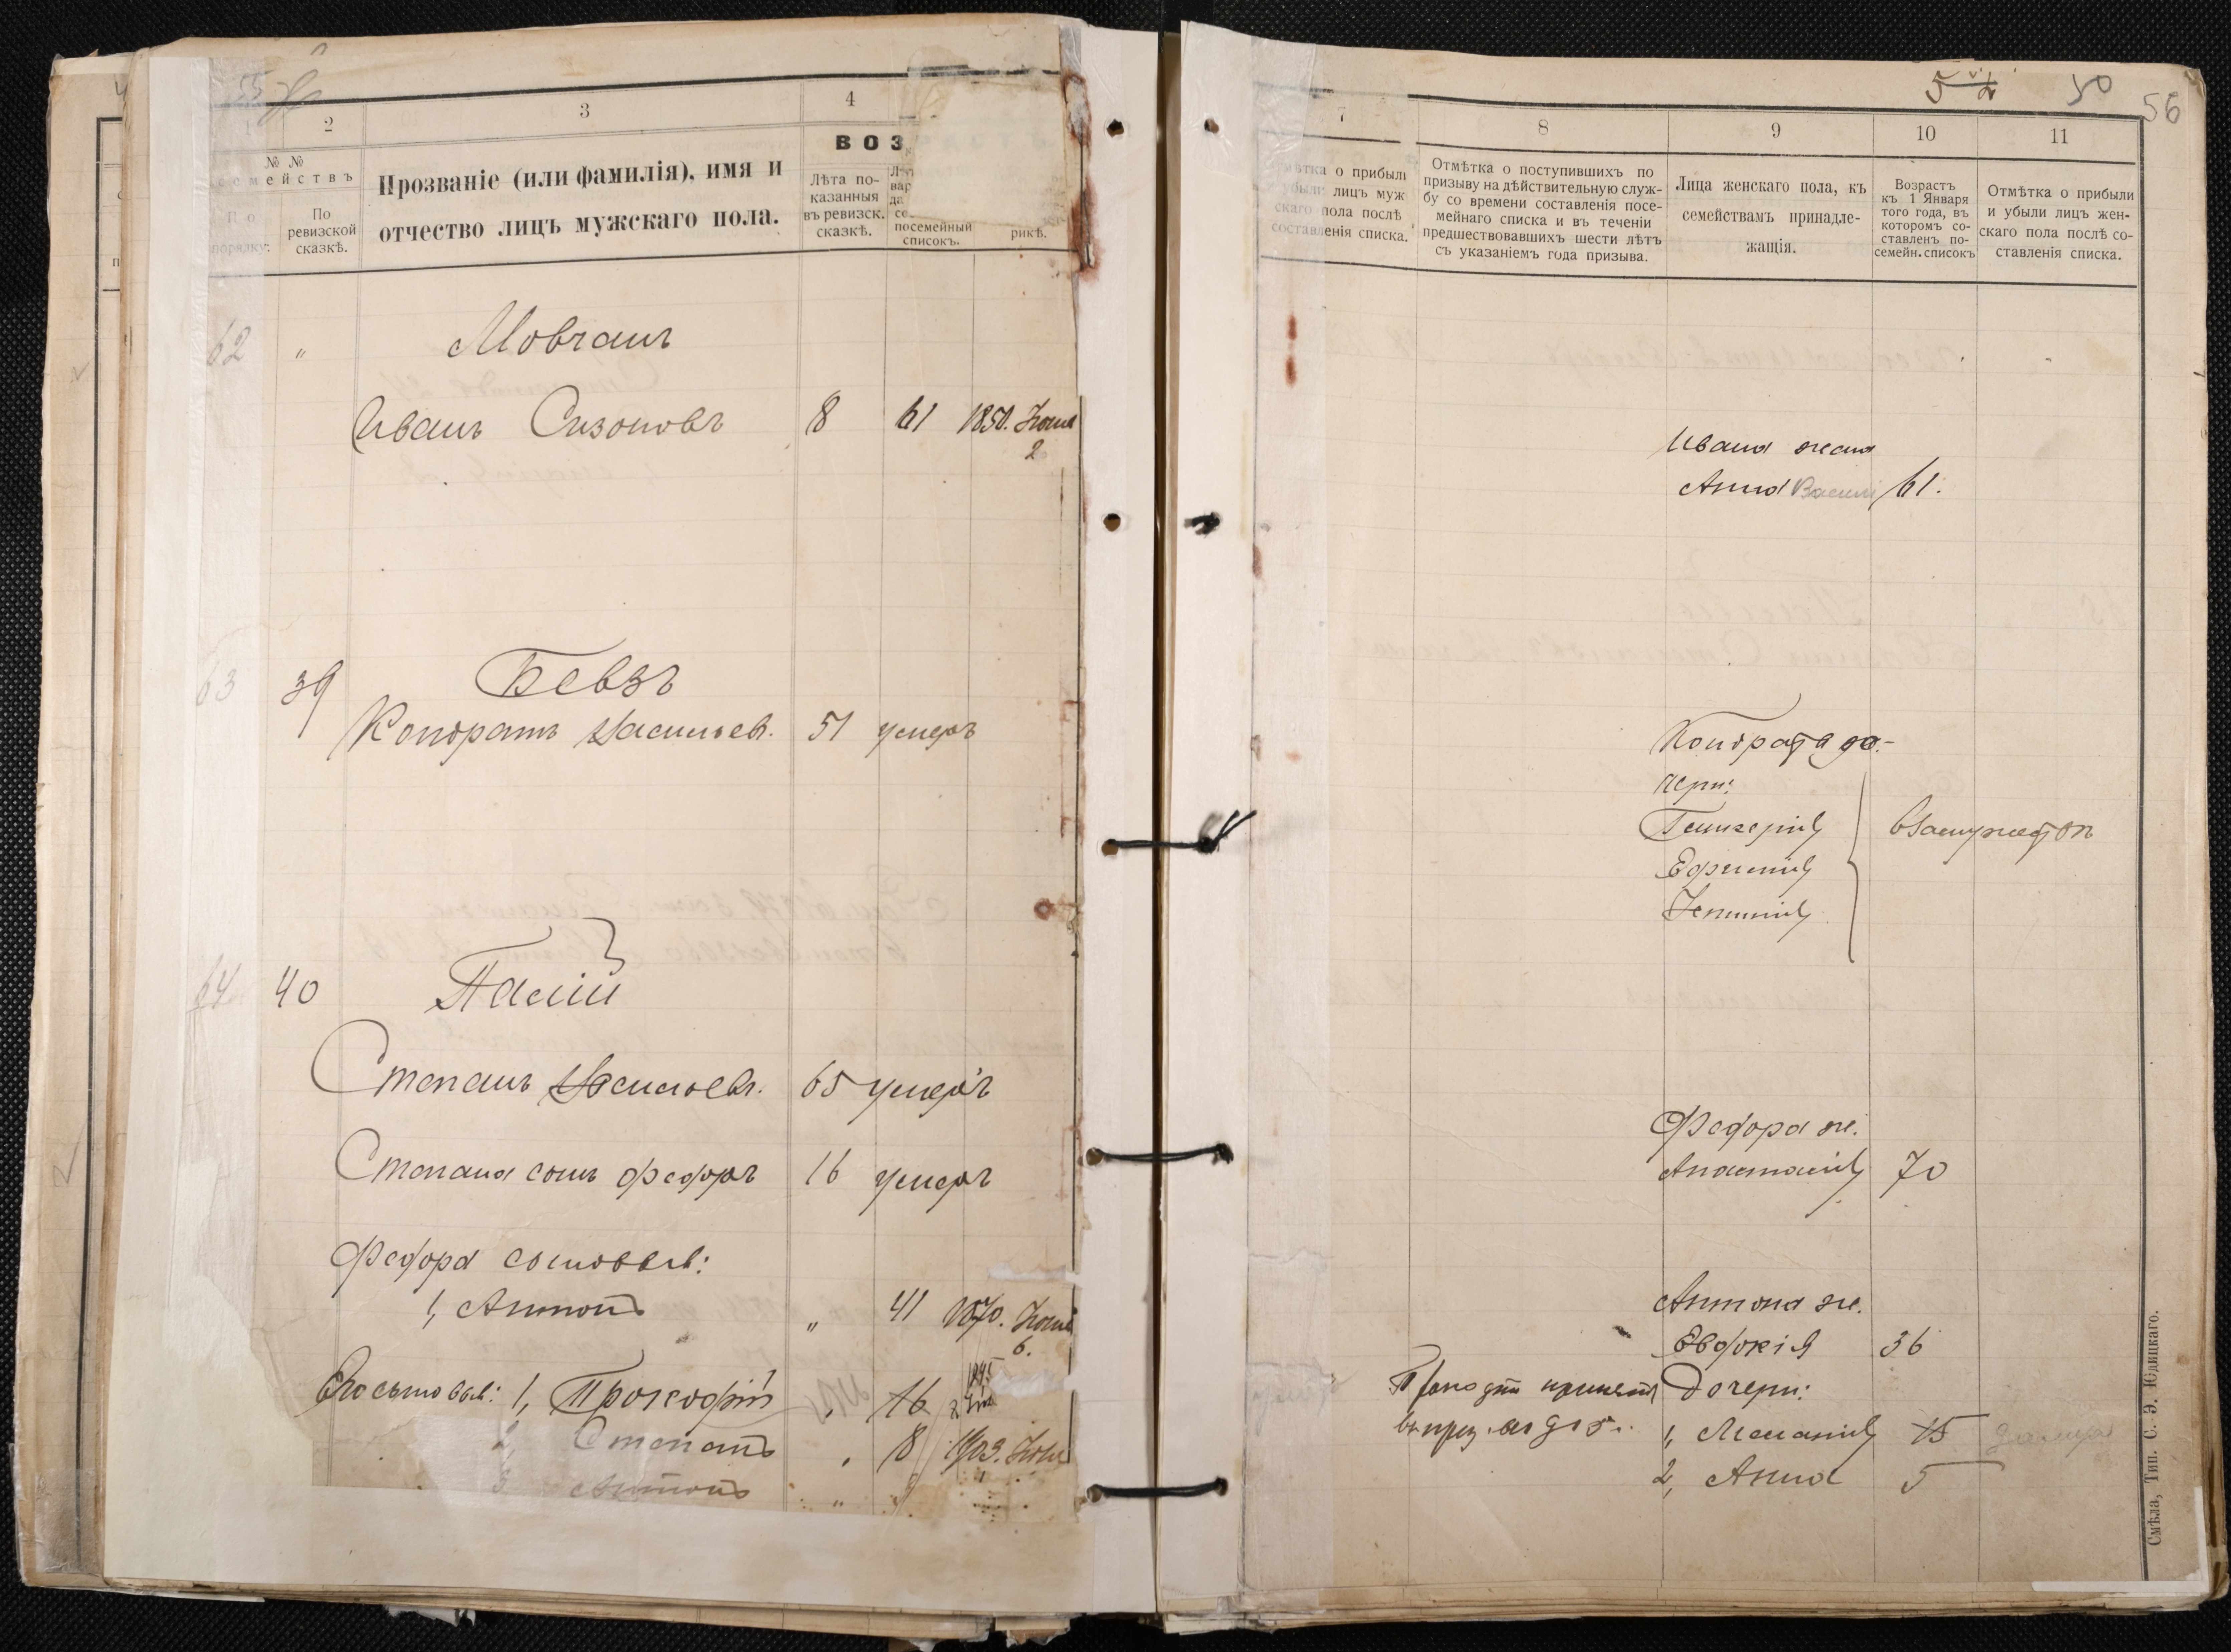 55
1 2 3 4
№ №
семействъ
По
порядку:
По
ревизской
сказкѣ.
Прозваніе (или фамилія), имя и
отчество лицъ мужскаго пола.
ВОЗ
Лѣта по-
казанныя
въ ревизск.
сказкѣ.
посемейный
списокъ.
рикѣ.
62 " Мовчанъ
Иванъ Сизоновъ 8 61 1850. Іюня
2
63 39 Бевзъ
Кондратъ Васильев. 51 умеръ
64 40 Палій
Степанъ Васильевъ. 65 умеръ
Степана сынъ Федоръ 16 умеръ
Федора сыновья:
1, Антонъ " 41 1870. Іюня
6.
Его сыновья: 1, Прокофій " 16 1895
2, Степанъ " 8 1903. Іюня
3 Антонъ "
50
56
7 8 9 10 11
Отмѣтка о прибыли
убыли лицъ муж
скаго пола послѣ
составленія списка.
Отмѣтка о поступившихъ по
призыву на дѣйствительную служ-
бу со времени составленія посе-
мейнаго списка и въ теченіи
предшествовавшихъ шести лѣтъ
съ указаніемъ года призыва.
Лица женскаго пола, къ
семействамъ принадле-
жащія.
Возрастъ
къ 1 Января
того года, въ
которомъ со-
ставленъ по-
семейн. списокъ
Отмѣтка о прибыли
и убыли лицъ жен-
скаго пола послѣ со-
ставленія списка.
Ивана жена
Анна Васил 61.
Кондрата до-
чери:
Гликерія взамужеств
Ефимія
Устинія
Федора ж.
Анастасія 70
Антона ж.
Евдокія 36
Прокофій принятъ Дочери:
1, Меланія 15 замуж
2, Анна 5
Смѣла, Тип. С. Э. Юдицкаго.